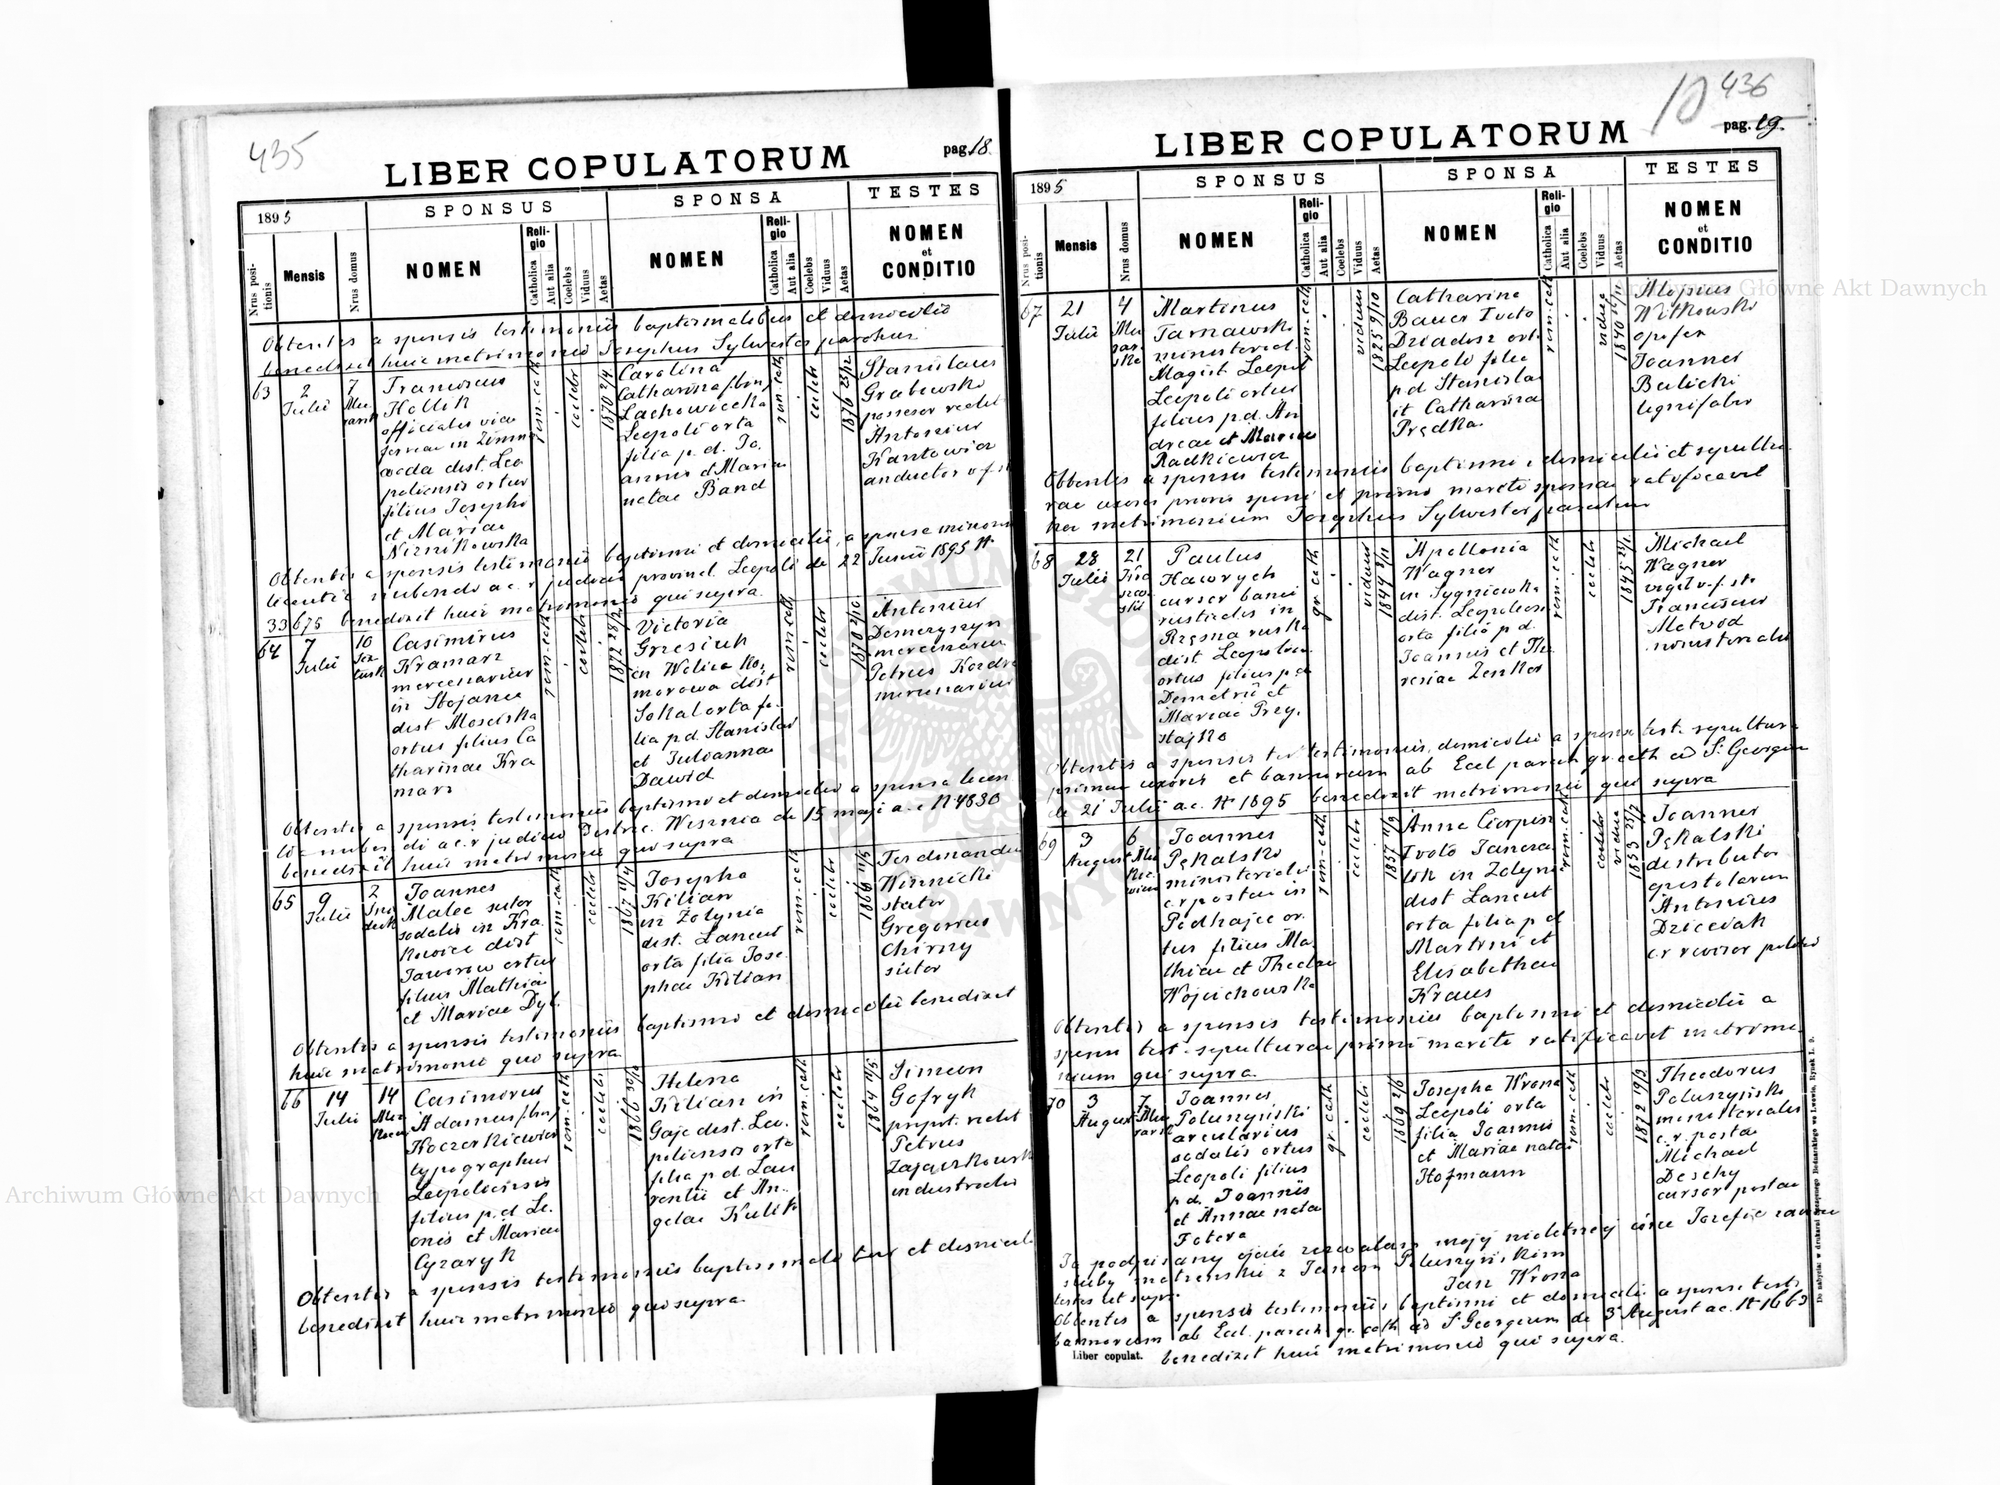 435
LIBER COPULATORUM
pag. 18.
1895
SPONSUS
SPONSA
TESTES
Nrus positionis
Mensis
Nrus domus
NOMEN
Religio
Catholica
Aut alia
Coelebs
Viduus
Aetas
NOMEN
Religio
Catholica
Aut alia
Coelebs
Viduus
Aetas
NOMEN
et
CONDITIO
Obtentis a sponsis testimoniis baptismalibus et domicilio
benedixit huic matrimonio Josephus Sylwester parochus
63
2
Julii
7
Franciscus
Hollik
officialis viae
ferreae in Zimna
woda dist. Leo
poliensis ortus
filius Josephi
et Mariae
Niznikowska
rom. cath
coelebs
1870 2/4
Carolina
Catharina /bin/
Lachowiecka
Leopoli orta
filia p. d. Jo
annis et Maria
netae Band
rom. cath
coelebs
Stanislaus
Grabowski
possesor realit
Antonius
Kantowicz
Obtentis a sponsis testimoniis baptismi et domicilii, a sponsa minorenni
licentia nubendi a c. r. judicio provincl. Leopoli de 22 Junii 1895 N
33675 benedixit huic matrimonio qui supra.
64
7
Julii
10
Casimirus
Kramarz
mercenarius
in Stojance
dist Mosciska
ortus filius Ca
tharinae Kra
marz
rom. cath
coelebs
1872 28/2
Victoria
Grzesiuk
in Wolica Ko
morowa dist
Sokal orta fi
lia p. d. Stanislai
et Julianna
Dawid
rom cath
coelebs
1870 2/10
Antonius
mercenarius
Petrus
mercenarius
Obtentis a sponsis testimoniis baptismi et domicilio a sponsa licen
tia nuben di a c. r. judicio Distric. Wisznia de 15 maji a. c N 4830
benedixit huic matrimonio qui supra
65
9
Julii
2
Joannes
Malec sutor
sodalis in Kra
kowice dist
Jaworow ortus
filius Mathiae
et Mariae Dyl.
rom-cath
coelebs
1867 11/4
Josepha
Kilian
in Zolynia
dist. Lancut
orta filia Jose
phae Kilian
rom. cath
coelebs
1866 11/5
Ferdinandus
Winnicki
stator
Gregorius
Chirny
sutor
Obtentis a sponsis testimoniis baptismi et domicilii benedixit
huic matrimonio qui supra
66
14
Julii
14
Casimirus
Adamus /bin/
Koczerkiewicz
typographus
Leopoliensis
filius p. d. Le
onis et Mariae
Cyzaryk
rom-cath
coelebs
Helena
Kilian in
Gaje dist. Leo
poliensis orta
filia p. d. Lau
rentii et An
gelae Kulik
rom. cath
coelebs
1864 11/5
Simeon
Gofryk
propr. realit
Petrus
Zajaczkowski
industrialis
Obtentis a sponsis testimoniis baptismali bus et domicilii
benedixit huic matrimonio qui supra
10 436
LIBER COPULATORUM
pag. 19.
1895
SPONSUS
SPONSA
TESTES
Nrus positionis
Mensis
Nrus domus
NOMEN
Religio
Catholica
Aut alia
Coelebs
Viduus
Aetas
NOMEN
Religio
Catholica
Aut alia
Coelebs
Viduus
Aetas
NOMEN
et
CONDITIO
67
21
Julii
4
Martinus
Tarnawski
ministerial.
Magist. Leopol
Leopoli ortus
filius p. d. An
dreae et Mariae
Radkiewicz
rom. cath
viduus
1825 9/10
Catharina
Bauer Ivoto
Dziadosz orta
Leopoli filia
p. d. Stanislai
et Catharina
Prędka
rom-cath
vidua
Aloysius
Witkowski
opifex
Joannes
Balicki
lignifaber
Obtentis a sponsis testimoniis baptismi, domicilii et sepultu
rae uxoris prioris sponsi et primi mariti sponsae ratificavit
hoc matrimonium Josephus Sylwester parochus
68
28
Julii
21
Paulus
Hawrych
cursor banci
rusticalis in
Rzęsna ruska
dist Leopolien
ortus filius p. d
Demetrii et
Mariae Przy
stajko
gr. cath
viduus
Apollonia
Wagner
in Sygniowka
dist. Leopoliens
orta filia p. d.
Joannis et The
resiae Zenker
rom-cath
coelebs
Michael
Wagner
Franciscus
ministerialis
Obtentis a sponsis testimoniis, domicilii a sponso test. sepulturae
primae uxoris et bannorum ab Eccl. paroch gr. cath ad S. Georgium
de 21 Julii a. c. N 1895 benedixit matrimonio qui supra
69
3
August
6
Joannes
Pękalski
ministerialis
c. r. postae in
Podhajce or
tus filius Ma
thiae et Theclae
Wojcichowska
rom-cath
coelebs
Anna Cierpin
Ivoto Janera
lok in Zolynia
dist Lancut
orta filia p d
Martini et
Elisabethae
Kraus
rom-cath
vidua
Joannes
Pękalski
distributor
epistolarum
Antonius
Dzieciak
c. r revisor
Obtentis a sponsis testimoniis baptismi et domicilii a
sponsa test. sepulturae primi mariti ratificavit matrimo
nium qui supra.
70
3
August
7
Joannes
Poluszyński
arcularius
sodalis ortus
Leopoli filius
p d. Joannis
et Annae nata
Fotera
gr. cath
coelebs
1869 2/6
Josepha Wrona
Leopoli orta
filia Joannis
et Mariae nata
Hofmann
rom-cath
coelebs
1872 19/3
Theodorus
Poluszyński
ministerialis
c. r. postae
Michael
Deschy
cursor postae
Ja podpisany ojciec zezwalam mojej nieletniej córce Jozefie zawrzeć
śluby małżeńskie z Janem Poluszyńskim
Jan Wrona
testes ut supra
Obtentis a sponsis testimoniis baptismi et domicilii a sponso testi.
bannorum ab Eccl. paroch gr. cath ad S Georgium de 3 August a c. N 1663
benedixit huic matrimonio qui supra.
Liber copulat.
Archiwum Główne Akt Dawnych
Archiwum Główne Akt Dawnych
ARCHIWUM GŁÓWNE AKT DAWNYCH